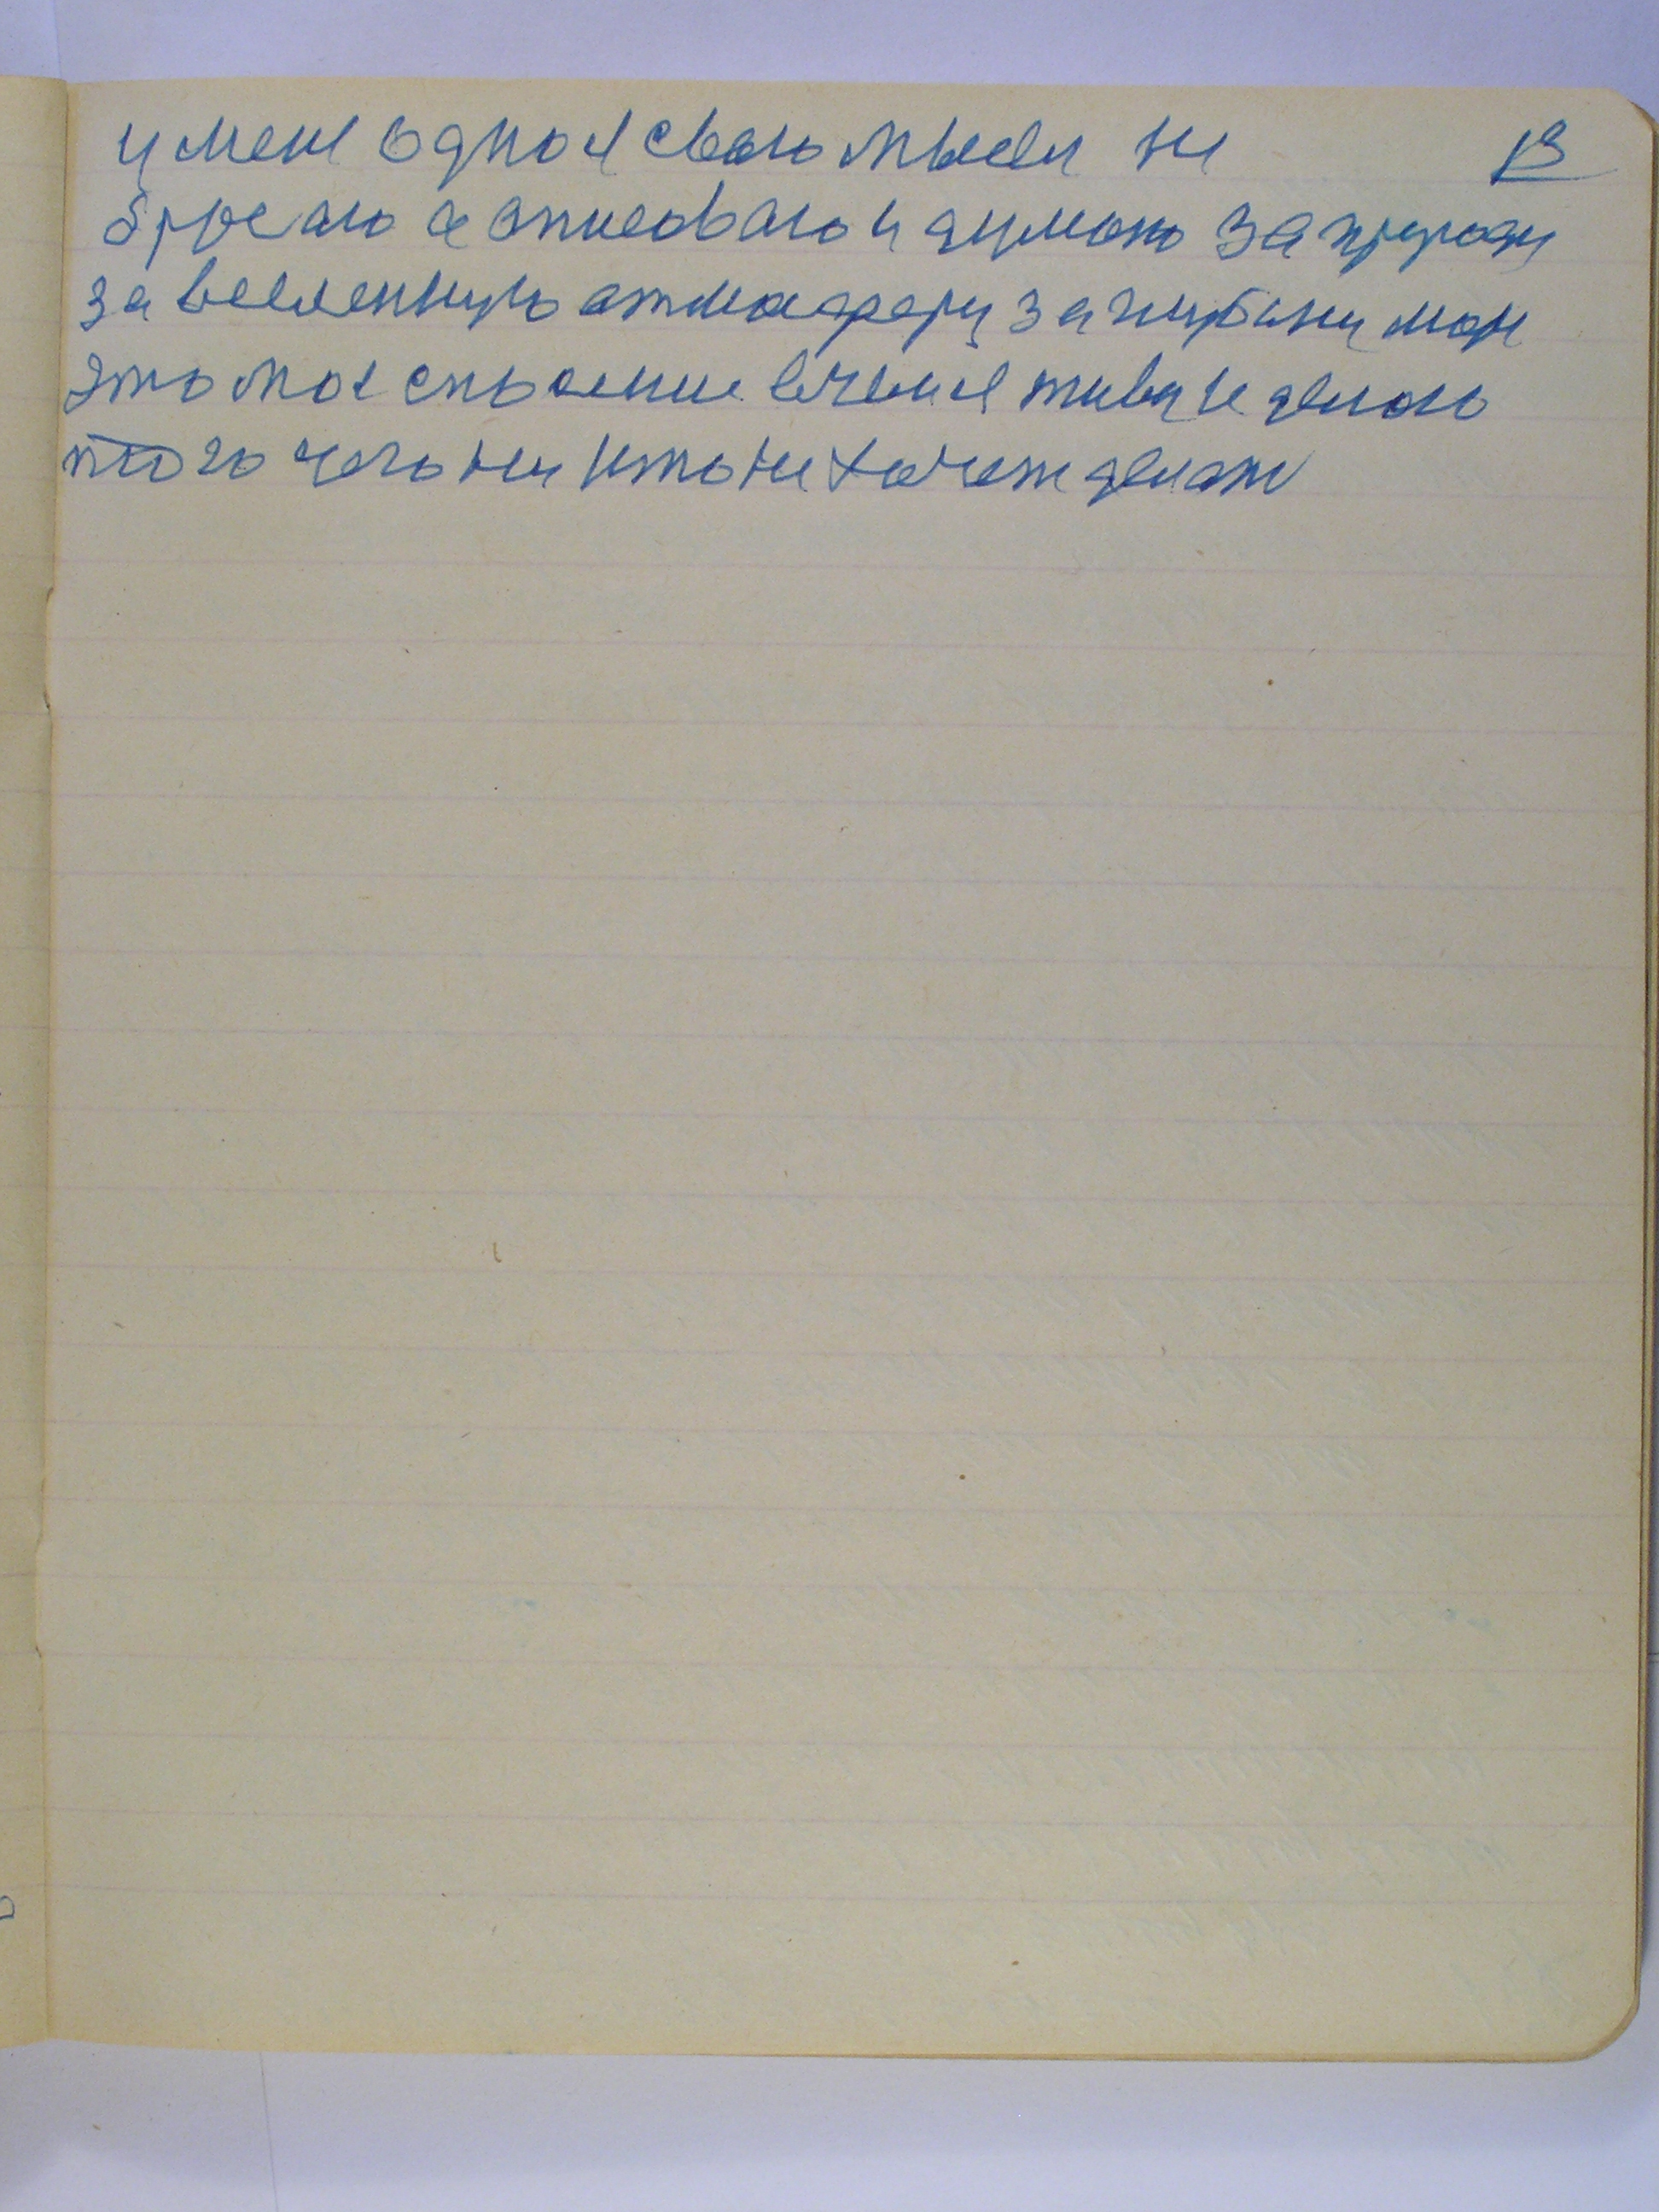 у меня одно я свою мысль не 13
бросаю я описоваю и думаю за природу
за вселенную атмосферу за глубину моря
это моя спасение вечная живу и делаю
того чего ни кто не хочет делать